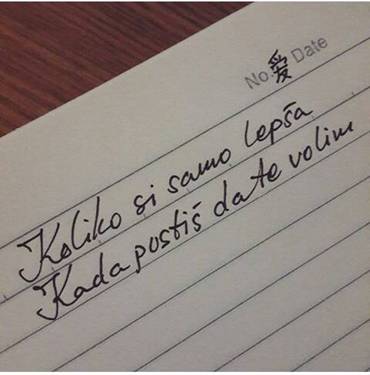 No. 爱 Date
Koliko si samo lepša
Kada pustiš da te volim